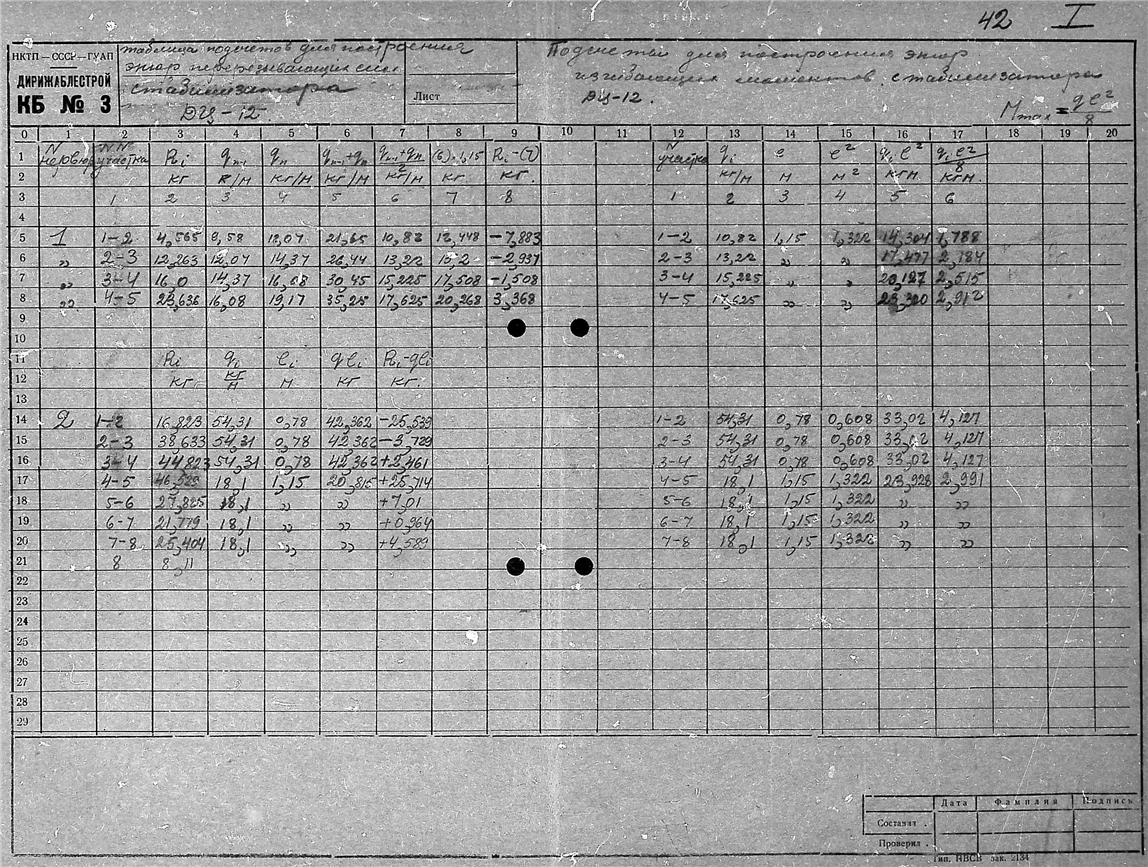 42 I
НКТП — СССР — ГУАП
ДИРИЖАБЛЕСТРОЙ
КБ № 3
таблица подсчетов для построения
эпюр перерезывающих сил
стабилизатора
ДЦ-12.
Лист
Подсчеты для построения эпюр
изгибающих моментов стабилизатора
ДЦ-12.
Mmax = qe²/8
0 1 2 3 4 5 6 7 8 9 10 11 12 13 14 15 16 17 18 19 20
1 N нервюр NN участка Ri qn-1 qn qn-1+qn qn-1+qn/2 (6)·1,15 Ri-(7) N участка qi e e² qi e² qi e²/8
2 кг к/м кг/м кг/м кг/м кг кг. кг/м м м² кгм. кгм.
3 1 2 3 4 5 6 7 8 1 2 3 4 5 6
4
5 1 1-2 4,565 9,58 12,07 21,65 10,82 12,448 -7,883 1-2 10,82 1,15 1,322 14,304 1,788
6 „ 2-3 12,263 12,07 14,37 26,44 13,22 15,2 -2,937 2-3 13,22 „ „ 17,477 2,184
7 „ 3-4 16,0 14,37 16,08 30,45 15,225 17,508 -1,508 3-4 15,225 „ „ 20,127 2,515
8 „ 4-5 23,636 16,08 19,17 35,25 17,625 20,268 3,368 4-5 17,625 „ „ 23,300 2,912
9
10
11 Ri qi ei qei Ri-qei
12 кг кг/м м кг кг.
13
14 2 1-2 16,823 54,31 0,78 42,362 -25,539 1-2 54,31 0,78 0,608 33,02 4,127
15 2-3 38,633 54,31 0,78 42,362 -3,729 2-3 54,31 0,78 0,608 33,02 4,127
16 3-4 44,823 54,31 0,78 42,362 +2,461 3-4 54,31 0,78 0,608 33,02 4,127
17 4-5 46,529 18,1 1,15 20,815 +25,714 4-5 18,1 1,15 1,322 23,928 2,991
18 5-6 27,825 18,1 „ „ +7,01 5-6 18,1 1,15 1,322 „ „
19 6-7 21,779 18,1 „ „ +0,964 6-7 18,1 1,15 1,322 „ „
20 7-8 25,404 18,1 „ „ +4,589 7-8 18,1 1,15 1,322 „ „
21 8 8,11
22
23
24
25
26
27
28
29
Дата Фамилия Подпись
Составил .
Проверил .
Тип. НВСВ зак. 2134